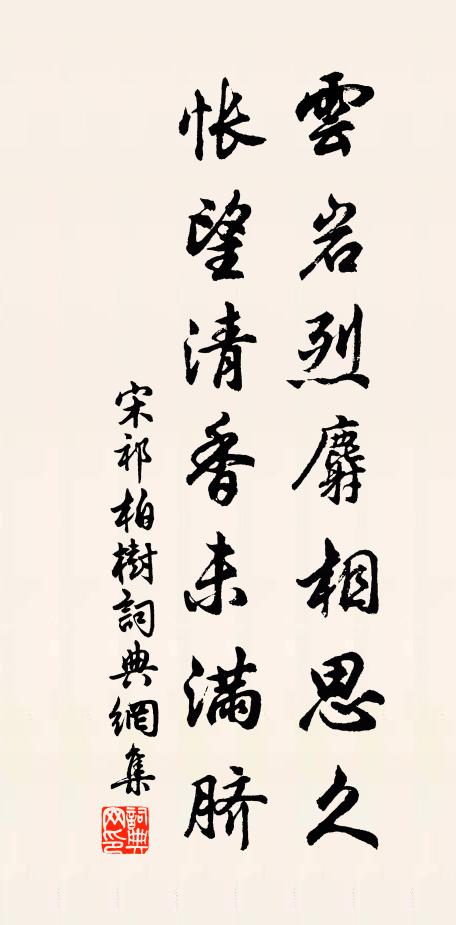 雲岩烈麝相思久
悵望清香未满脐
宋祁柏樹詞典網集
詞典網印